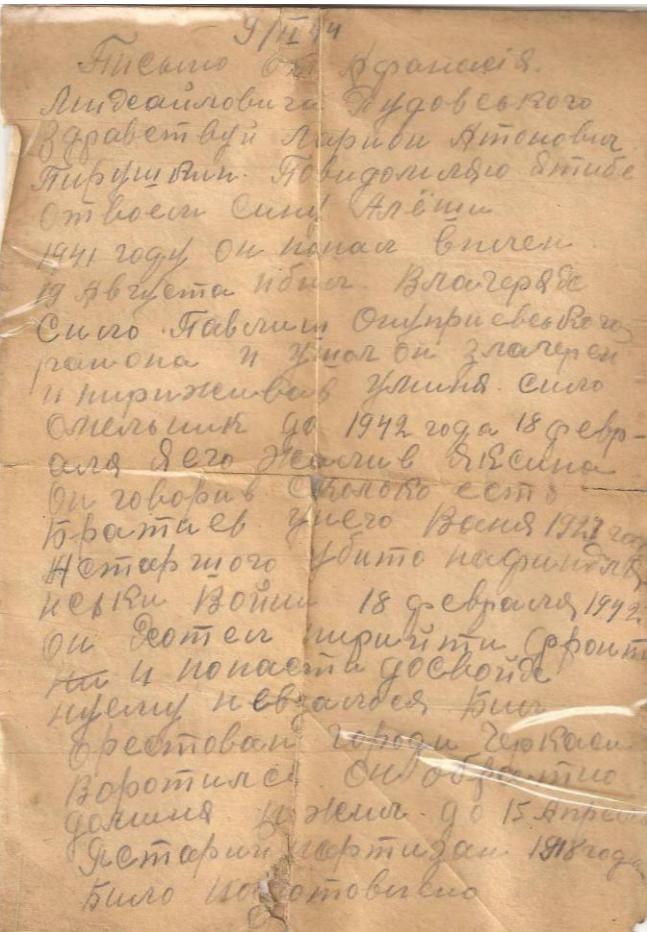 9/II 44
Письмо от Афанасія
Михайловича Дудовського
Здравствуй Ларион Атонович
Пирушкин. Повидомляю я тибе
отвоем сину Алёши
1941 году он попал вплен
19 Августа ибил. Влагеряхе
Сило. Павлиш Онуприевського
района и ушол он злагерен
и пирижевав умина. сило
Омельник до 1942 года 18 февр-
аля я его жалив яксина
он говорив сколько есть
Братиев унего Ваня 1927 год
Истаршого убито нафинля
нськи Войни 18 февраля 1942.
он Хотел пирийти фронт
и попасти досвойх
нуему невдалося Бил
Орестован городи Черкаси
воротился он обратно
домина ижил до 15 Апрел
Ястарий партизан 1918 года
Било